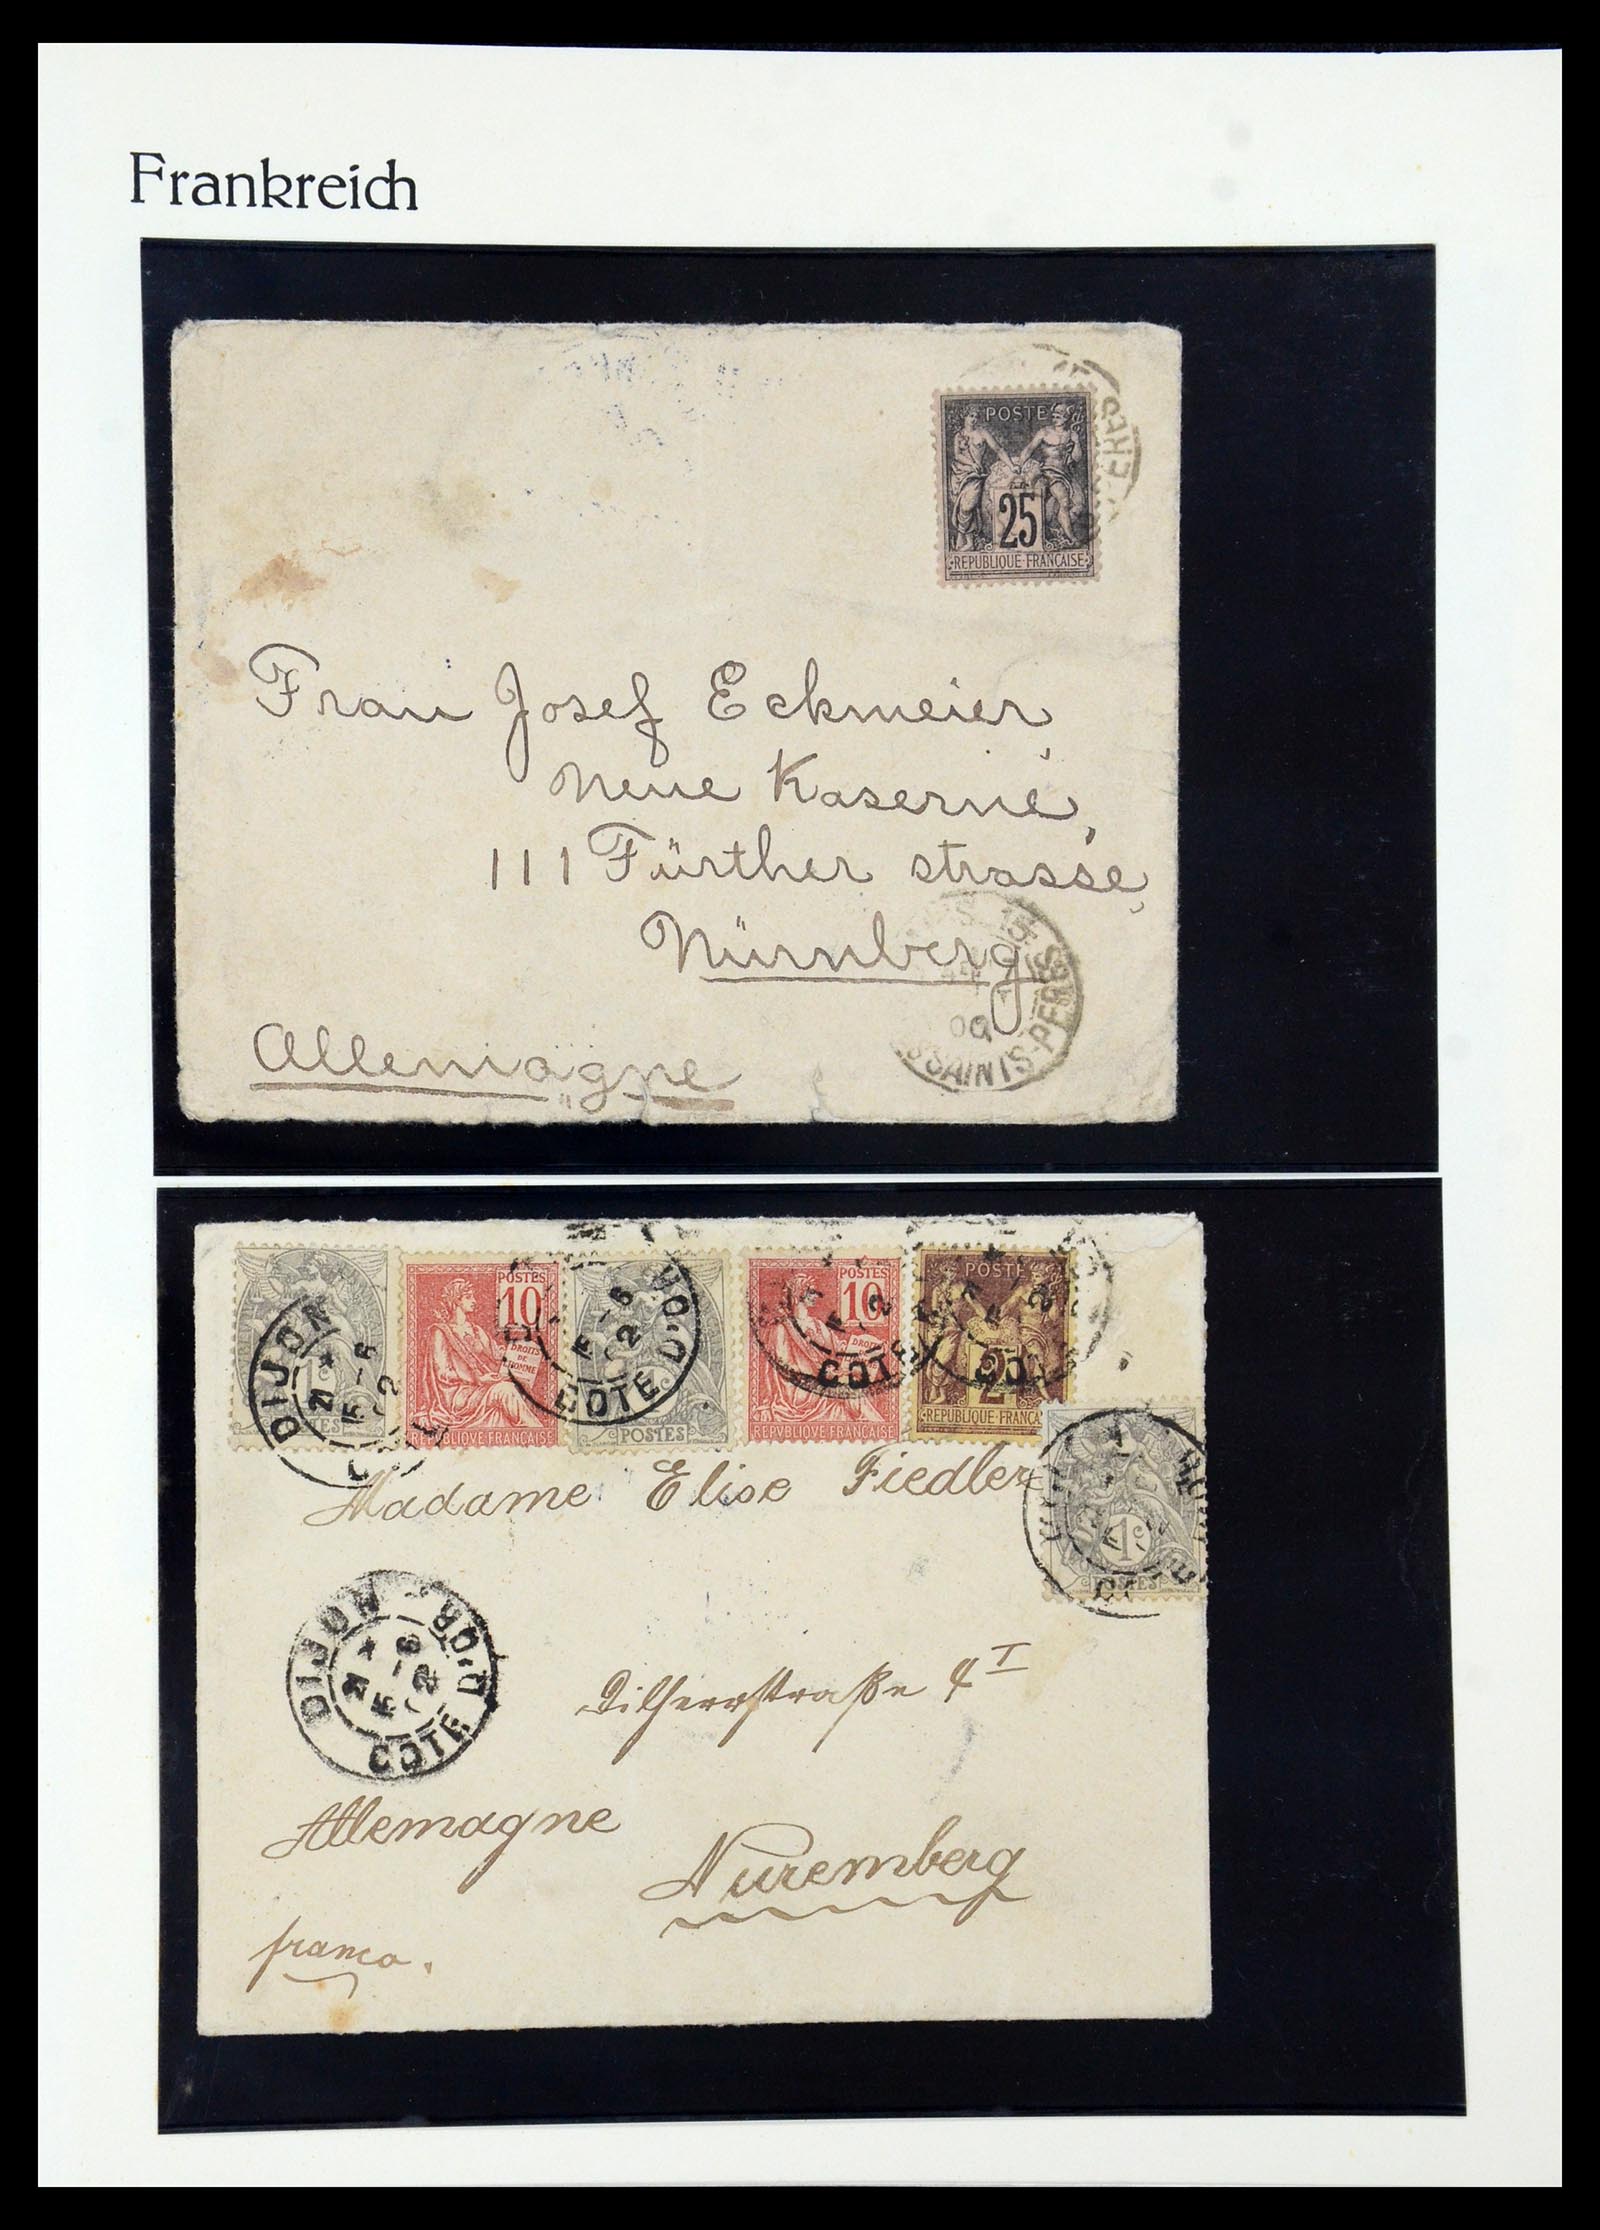 Frankreich
POSTE
25
REPUBLIQUE FRANÇAISE
Frau Josef Eckmeier,
Neue Kaserne,
111 Fürther strasse,
Nürnberg
Allemagne
15
00
SAINTS-PERES
POSTES
10
DROITS
DE
L'HOMME
REPVBLIQVE FRANÇAISE
POSTES
POSTES
10
REPVBLIQVE FRANÇAISE
POSTE
REPUBLIQUE FRANÇA
DIJON
COTE D'OR
1c
POSTES
Madame Elise Fiedler
DIJON
COTE D'OR
Dilherrstraße 4 I
Allemagne
Nuremberg
franco.